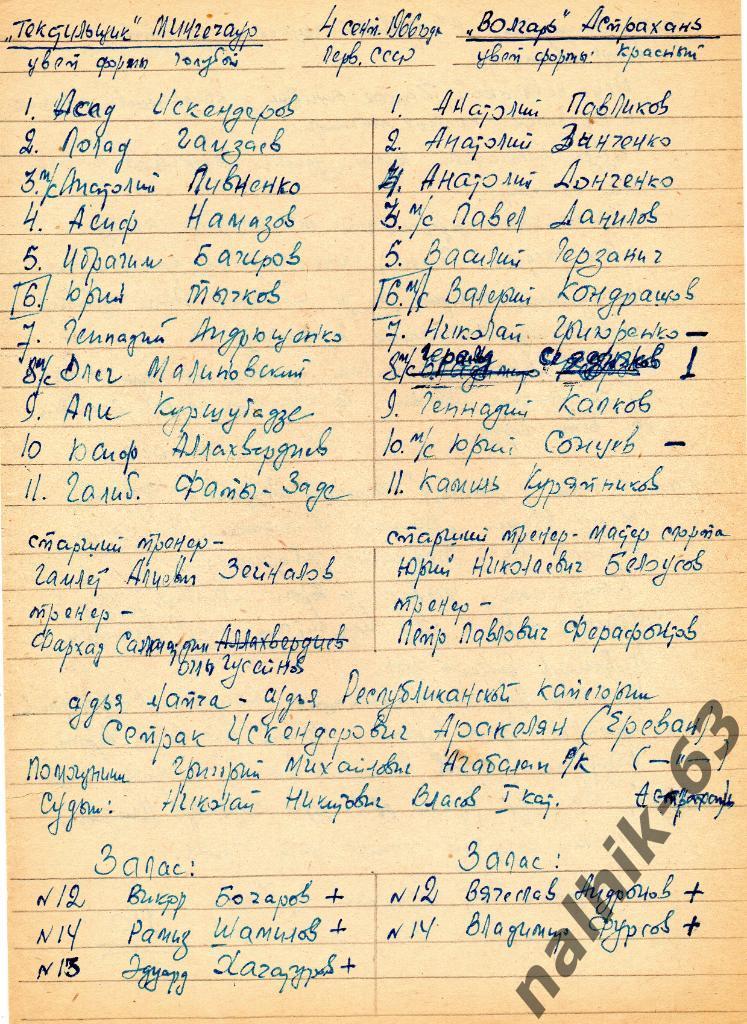 "Текстильщик" Мингечаур 4 сент. 1966 года "Волгарь" Астрахань
цвет формы голубой Перв. СССР цвет формы: красный
1. Асад Искендеров
2. Полад Гамзаев
3. м/с Анатолий Пивненко
4. Асиф Намазов
5. Ибрагим Багиров
6. Юрий Тычков
7. Геннадий Андрющенко
8 м/с Олег Малиновский
9. Али Куршубадзе
10 Юсиф Аллахвердиев
11. Галиб. Фаты-Заде
1. Анатолий Павликов
2. Анатолий Зинченко
4. Анатолий Донченко
3. м/с Павел Данилов
5. Василий Герзанич
6. м/с Валерий Кондрашов
7. Николай Григоренко —
8 м/с 1
9. Геннадий Капков
10. м/с Юрий Сонцев —
11. Камиль Курятников
старший тренер -
Гамлет Алиевич Зейналов
тренер -
Фархад Аллахвердиев
оглы Гусейнов
старший тренер - мастер спорта
Юрий Николаевич Белоусов
тренер -
Петр Павлович Ферафонтов
судья матча - судья Республиканской категории
Сетрак Искендерович Аракелян (Ереван)
Помощники Григорий Михайлович Агабалян р/к (—"—)
Судьи: Николай Никитович Власов I кат. Астрахань
Запас:
№12 Виктор Бочаров +
№14 Рамиз Шамилов +
№13 Эдуард Хачатуров +
Запас:
№12 Вячеслав Андронов +
№14 Владимир Фурсов +
nalnik-63